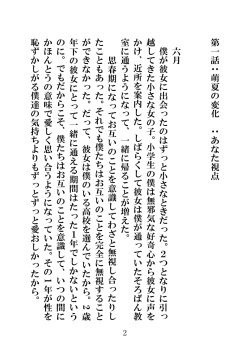 第一話：萌夏の変化　：あなた視点
六月
僕が彼女に出会ったのはずっと小さなときだった。2つとなりに引っ
越してきた小さな女の子。小学生の僕は無邪気な好奇心から彼女に声を
かけ、近所を案内した。しばらくして彼女は僕が通っていたそろばん教
室に通うようになって、一緒に帰ることが増えた。
思春期になってお互いのことを意識してわざと無視し合ったりし
たこともあった。それでも僕たちはお互いのことを完全に無視すること
ができなかった。だって、彼女は僕のいる高校を選んでいたから。2歳
年下の彼女にとって一緒に通える期間はたった1年でしかないという
のに。でもだからこそ、僕たちはお互いのことを意識して、いつの間に
かほんとうの意味で愛しく思い合うようになっていた。その1年が性を
恥ずかしがる僕達の気持ちよりもずっとずっと愛おしかったから。
2